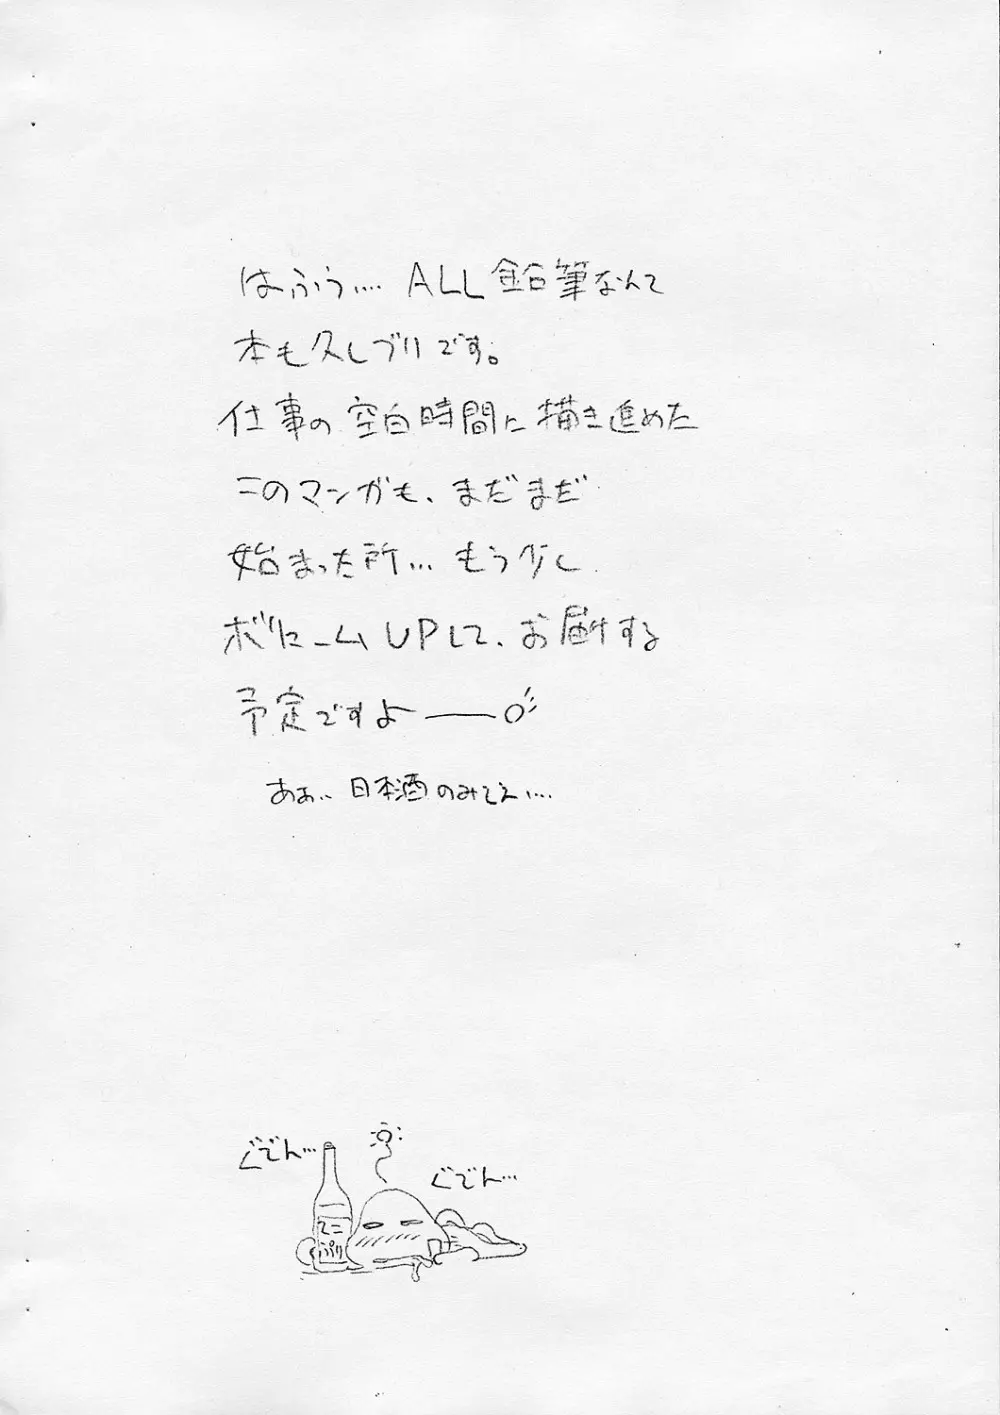 はふぅ… ALL鉛筆なんて
本も久しブリです。
仕事の空白時間に描き進めた
このマンガも、まだまだ
始まった所… もう少し
ボリュームUPして、お届けする
予定ですよ――○
あぁ… 日本酒のみてえ…
ぐでん…
ぐでん…
ぷり